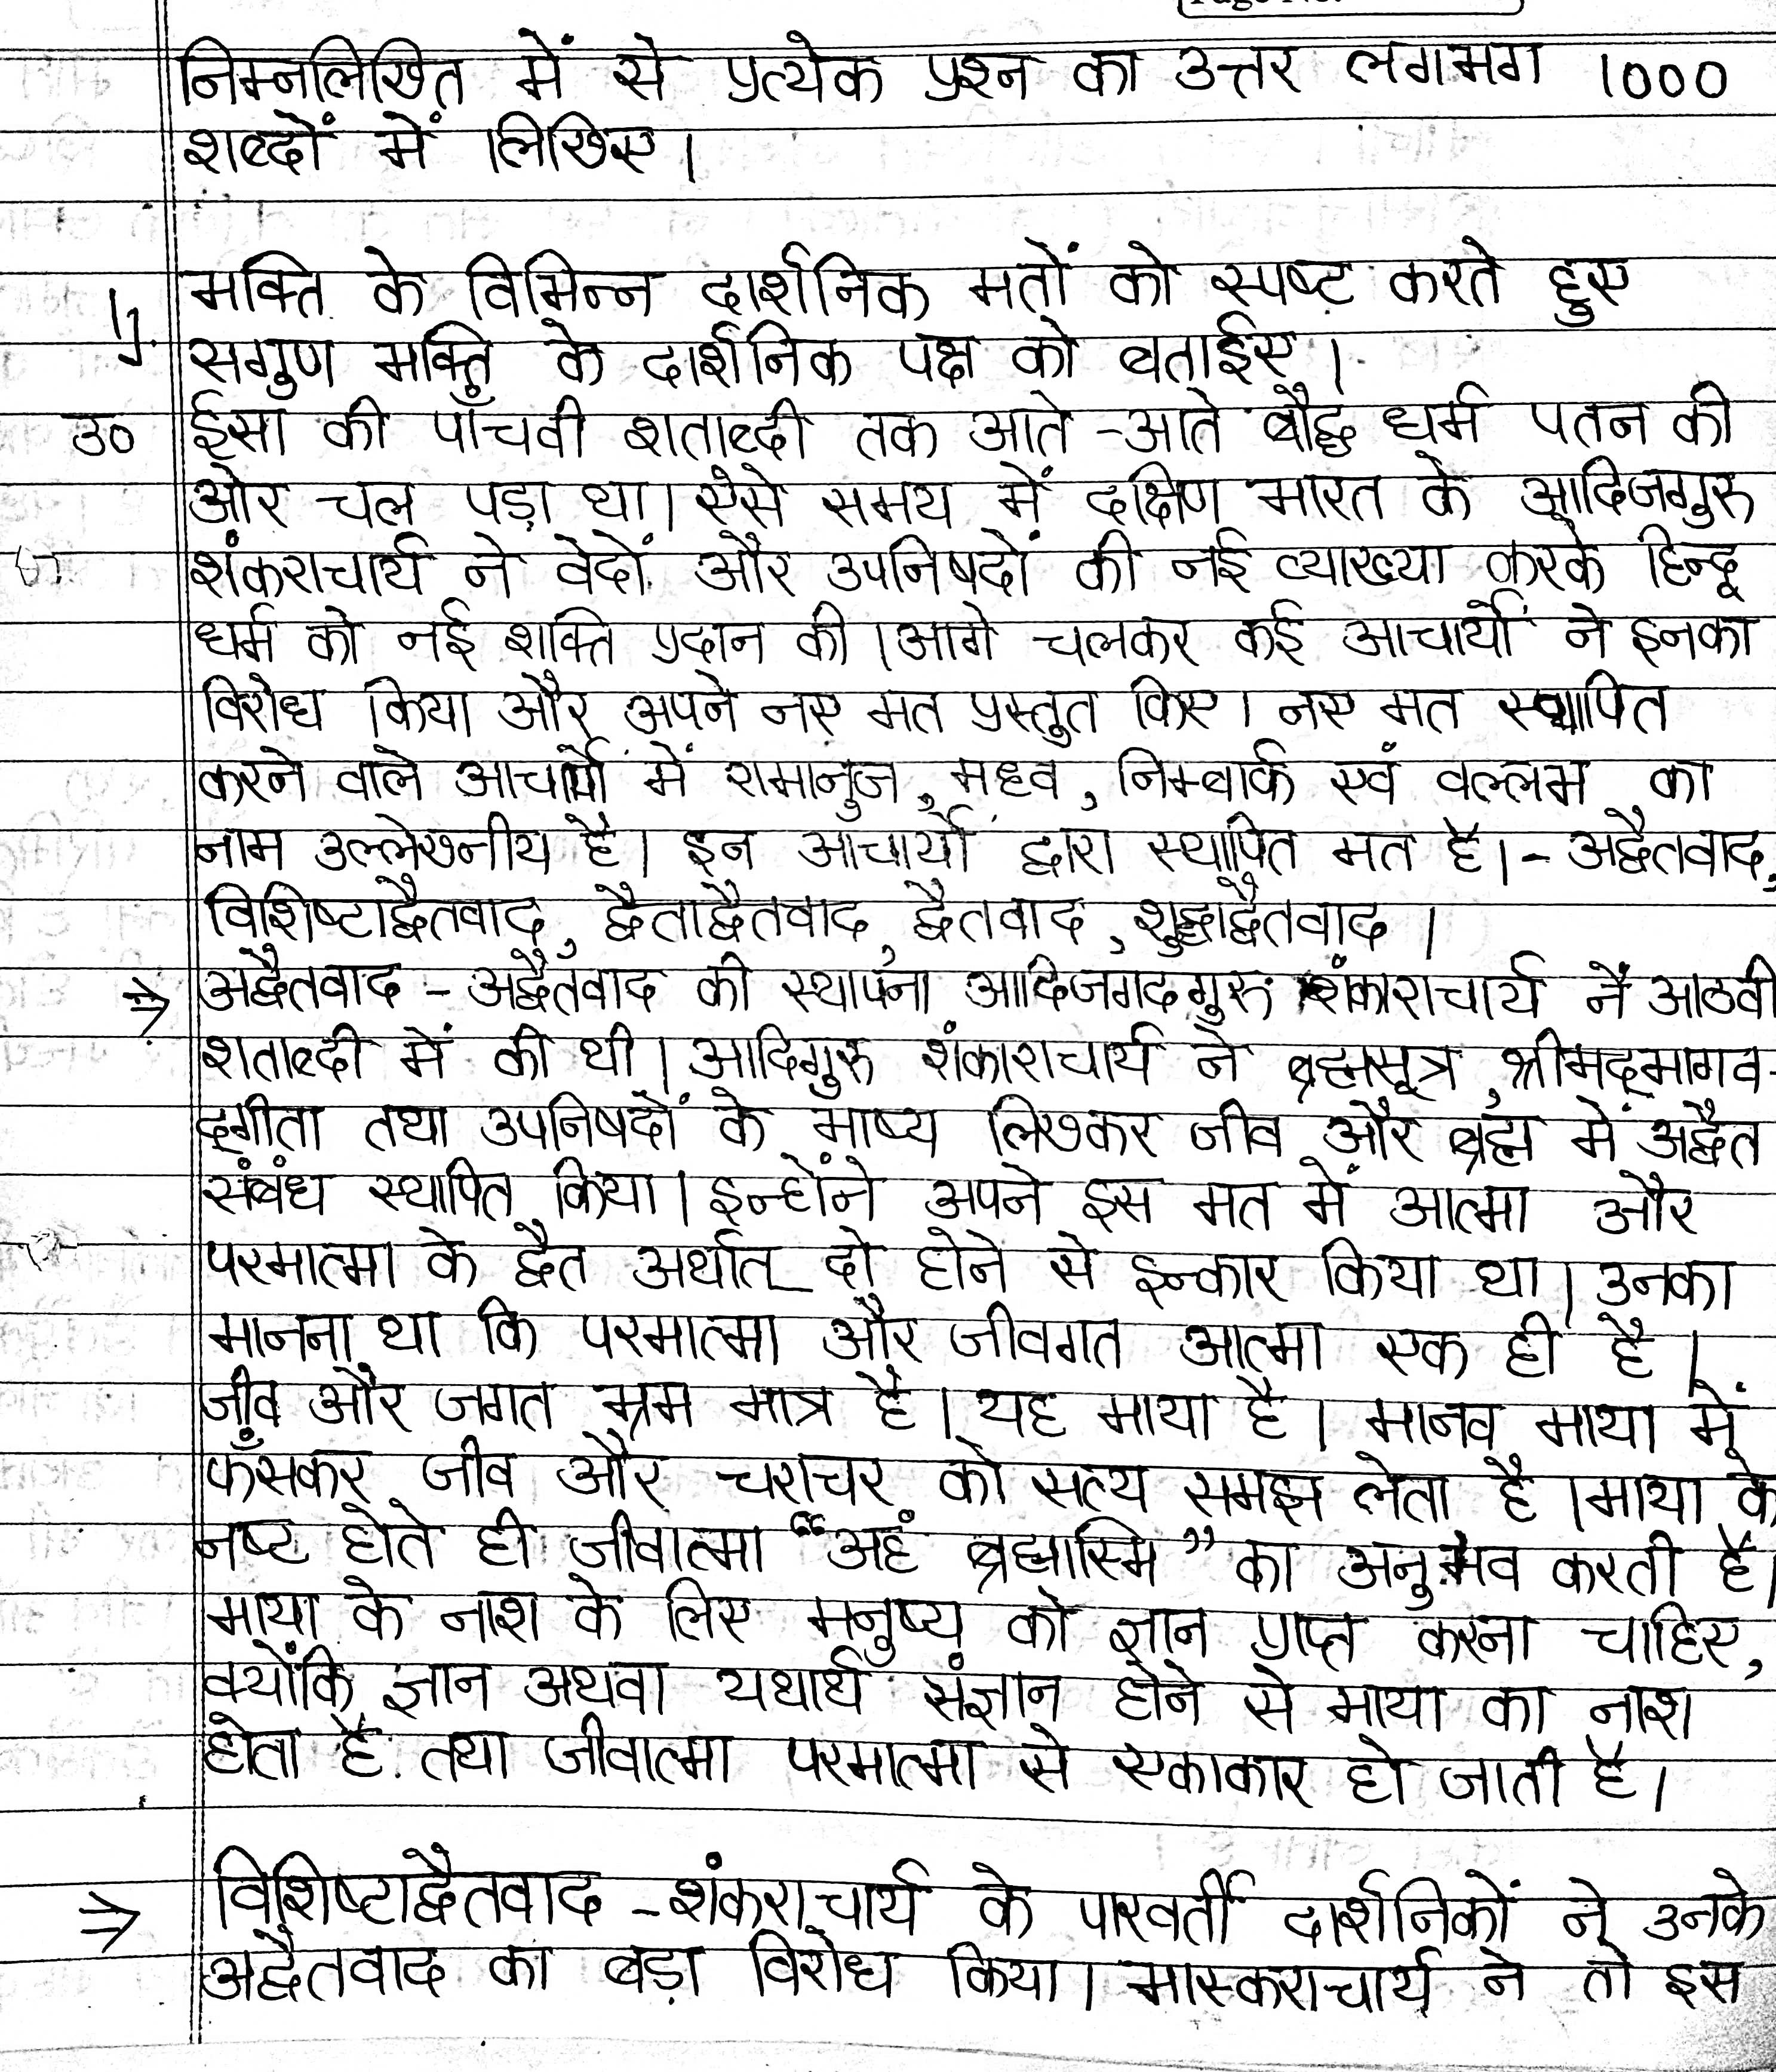 निम्नलिखित में से प्रत्येक प्रश्न का उत्तर लगभग 1000
शब्दों में लिखिए।
1). भक्ति के विभिन्न दार्शनिक मतों को स्पष्ट करते हुए
सगुण भक्ति के दार्शनिक पक्ष को बताईए।
उ० ईसा की पाँचवी शताब्दी तक आते-आते बौद्ध धर्म पतन की
ओर चल पड़ा था। ऐसे समय में दक्षिण भारत के आदिजगुरु
शंकराचार्य ने वेदों और उपनिषदों की नई व्याख्या करके हिन्दू
धर्म को नई शक्ति प्रदान की। आगे चलकर कई आचार्यों ने इनका
विरोध किया और अपने नए मत प्रस्तुत किए। नए मत स्थापित
करने वाले आचार्यो में रामानुज, मध्व, निम्बार्क एवं वल्लभ का
नाम उल्लेखनीय है। इन आचार्यों द्वारा स्थापित मत है।- अद्वैतवाद,
विशिष्टाद्वैतवाद, द्वैताद्वैतवाद, द्वैतवाद, शुद्धाद्वैतवाद।
⇒ अद्वैतवाद - अद्वैतवाद की स्थापना आदिजगदगुरु शंकाराचार्य नें आठवी
शताब्दी में की थी। आदिगुरु शंकाराचार्य ने ब्रह्मसूत्र, श्रीमद्भागव-
द्गीता तथा उपनिषदों के भाष्य लिखकर जीव और ब्रह्म में अद्वैत
संबंध स्थापित किया। इन्होंने अपने इस मत में आत्मा और
परमात्मा के द्वैत अर्थात् दो होने से इन्कार किया था। उनका
मानना था कि परमात्मा और जीवगत आत्मा एक ही है।
जीव और जगत भ्रम मात्र है। यह माया है। मानव माया में
फँसकर जीव और चराचर को सत्य समझ लेता है। माया के
नष्ट होते ही जीवात्मा “अहं ब्रह्मास्मि” का अनुभव करती है।
माया के नाश के लिए मनुष्य को ज्ञान प्राप्त करना चाहिए,
क्योंकि ज्ञान अथवा यथार्थ संज्ञान होने से माया का नाश
होता है. तथा जीवात्मा परमात्मा से एकाकार हो जाती है।
⇒ विशिष्टाद्वैतवाद - शंकराचार्य के पारवर्ती दार्शनिकों ने उनके
अद्वैतवाद का बड़ा विरोध किया। भास्कराचार्य ने तो इस